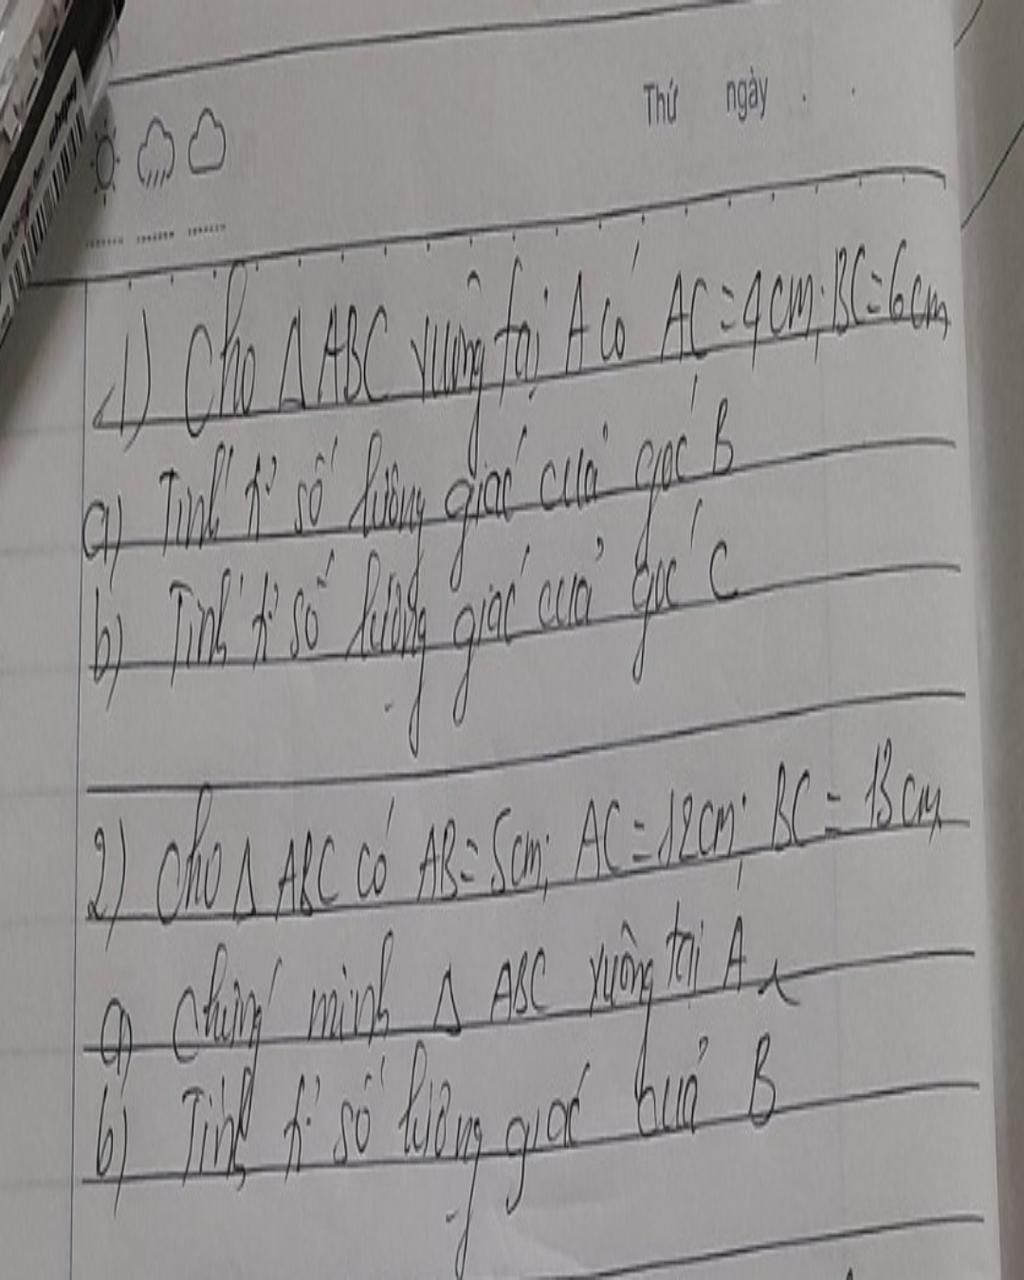 Thứ ngày
1) Cho Δ ABC vuông tại A có AC = 4cm; BC = 6cm
a) Tính tỉ số lượng giác của góc B
b) Tính tỉ số lượng giác của góc C
2) Cho Δ ABC có AB = 5cm; AC = 12cm; BC = 13cm
a) Chứng minh Δ ABC vuông tại A
b) Tính tỉ số lượng giác của B